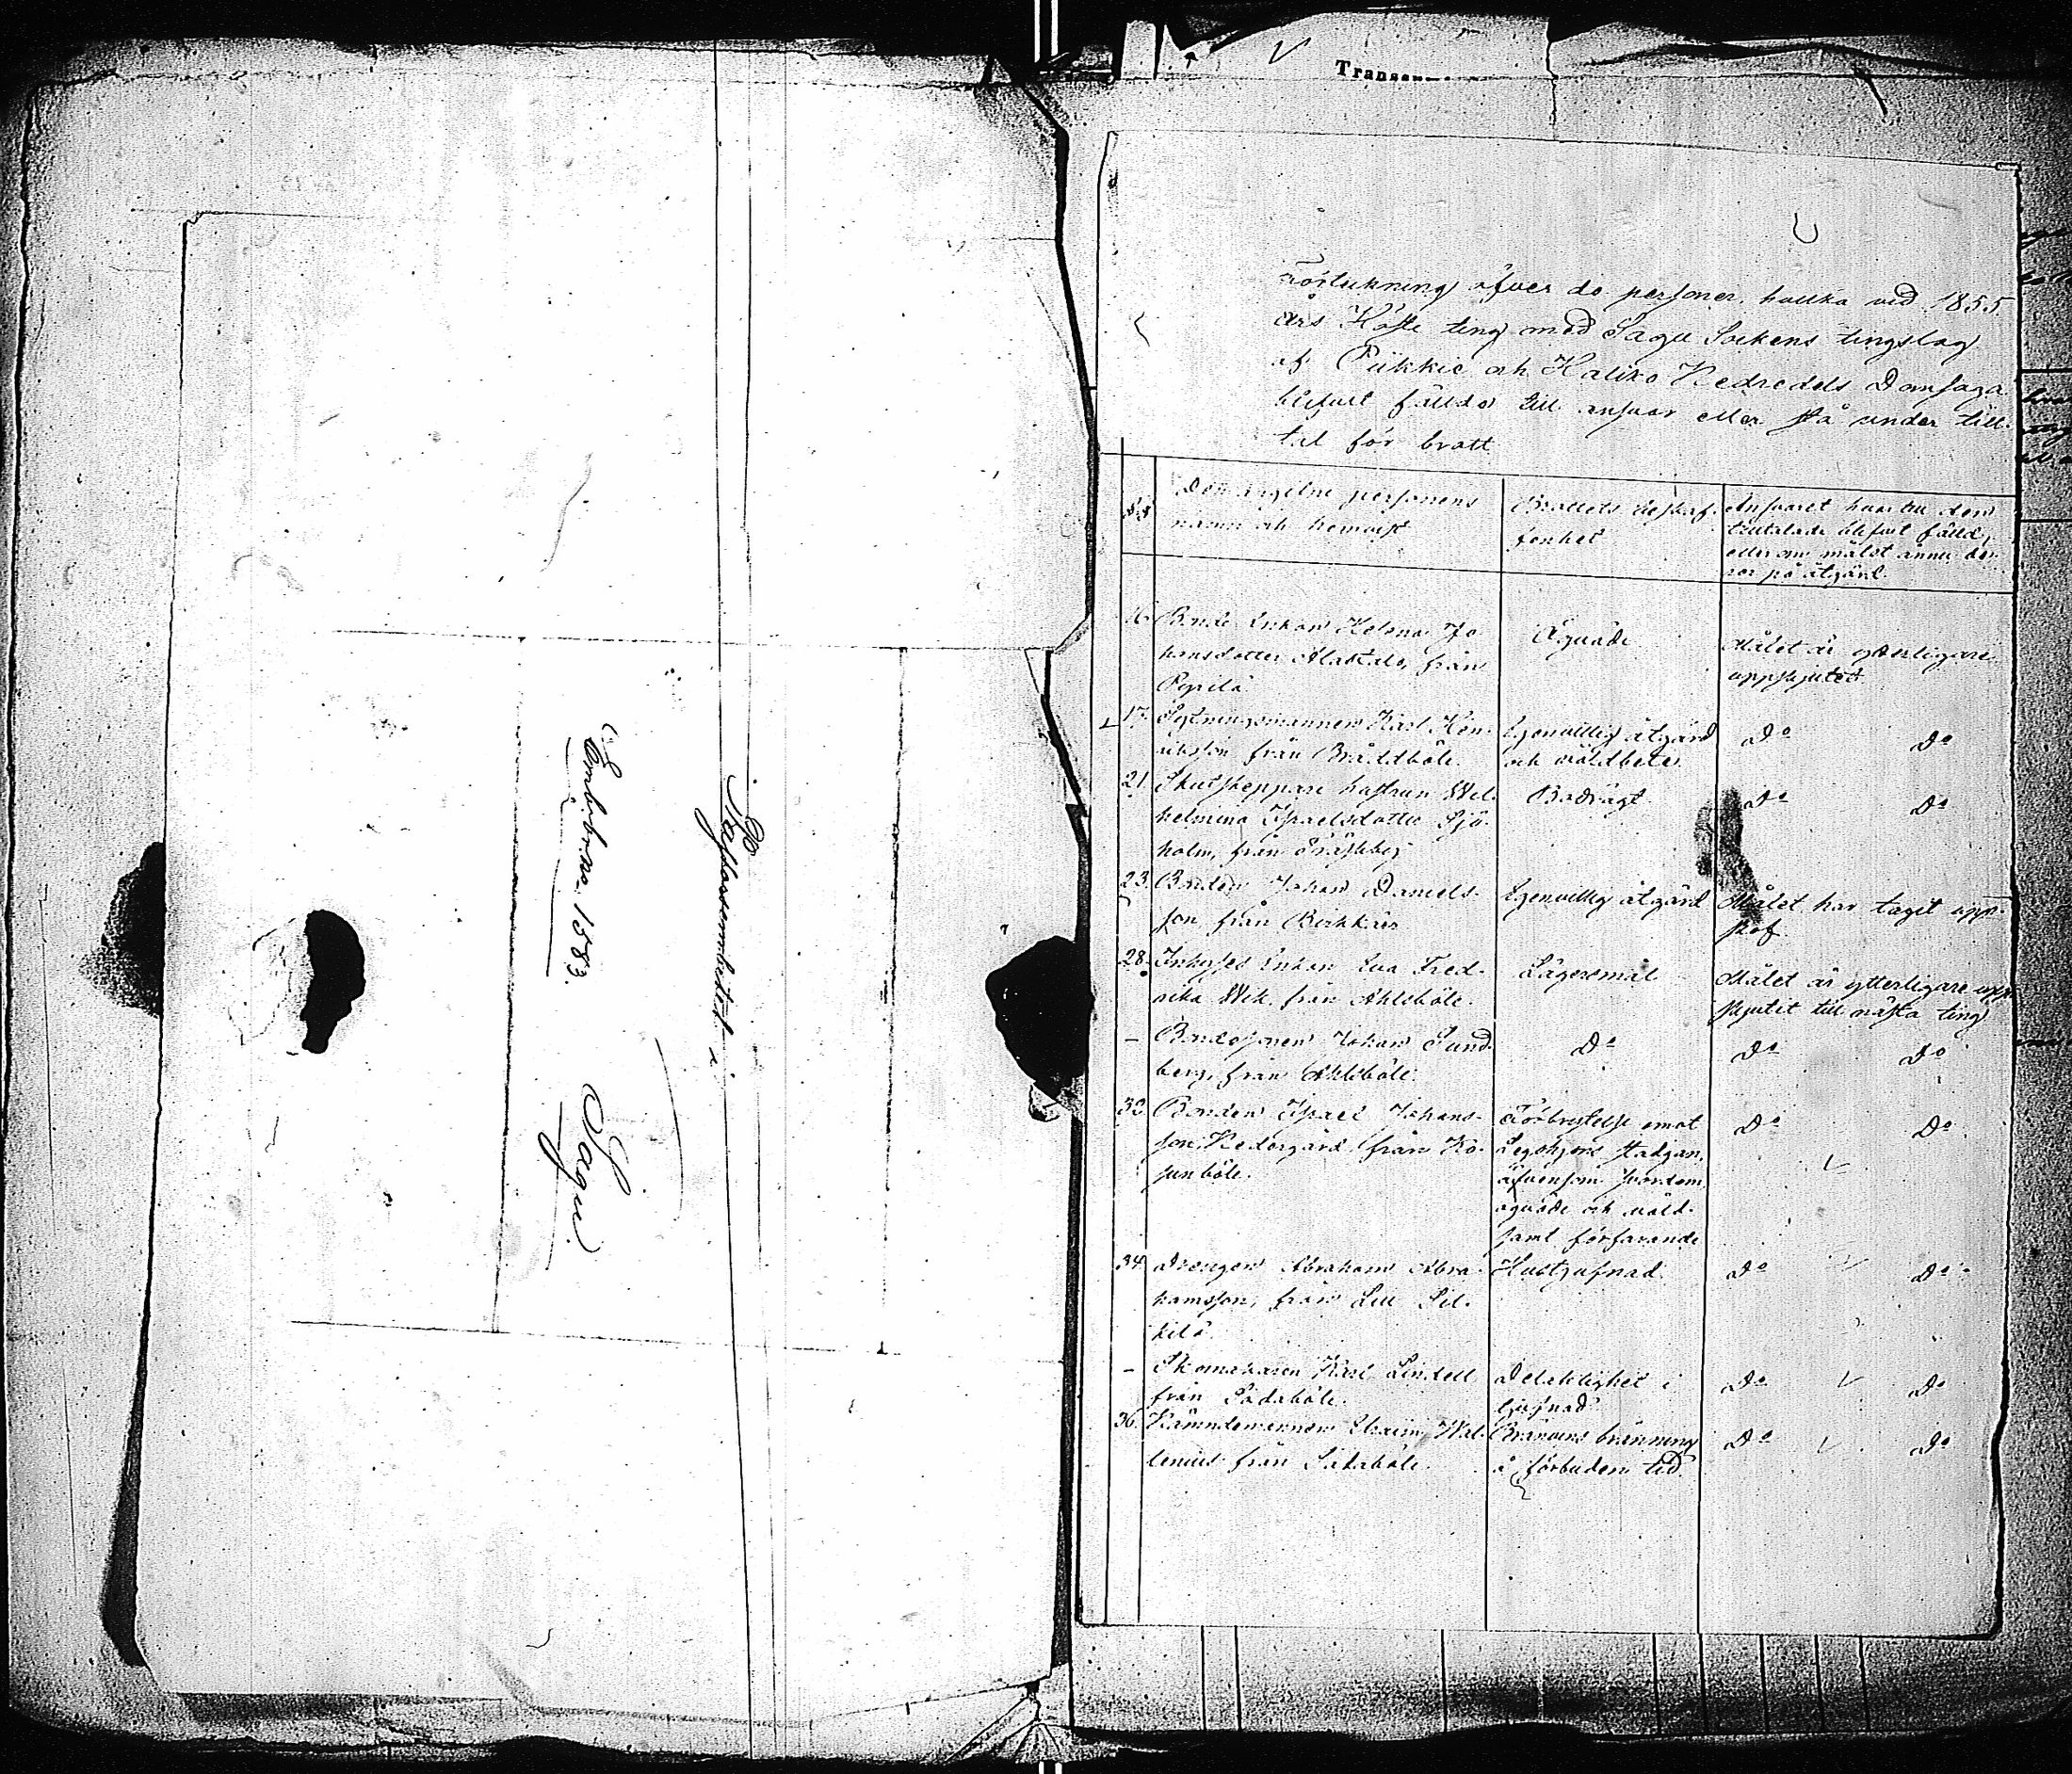 Pastorsembetet i
Sagu
Embetsno. 1583.
Förteckning öfver de personer, hvilka vid 1855
års Höste ting med Sagu Sockens tingslag
af Piikkie och Haliko Nedredels Domsaga
blifvit fällde till ansvar eller stå under till-
tal för brott
Den angifne personens
namn och hemvist
Brottets beskaf-
fenhet
Ansvaret hvartill den
tilltalade blifvit fälld,
eller om målet ännu be-
ror på åtgärd.
16. Bonde Enkan Helena Jo-
hansdotter Alastalo, från
Pyrilä
Åguäde
Målet är ytterligare
uppskjutet.
17. Sytningsmannen Karl Hen-
riksson från Bråddböle.
Egenvillig åtgärd
och våldbete.
Do Do
21. Skutskeppare hustrun Wil-
helmina Israelsdotter Sjö-
holm, från Träskby
Do Do
23. Bonden Johan Daniels-
son från Birkkärr
Egenvillig åtgärd
Målet har tagit upp-
skof
28. Inhyses Enkan Eva Fred-
rika Wik, från Ahlsböle.
Lägersmål
Målet är ytterligare upp-
skjutit till nästa ting
– Bondesonen Johan Sund-
berg, från Ahlsböle.
Do
Do Do
32. Bonden Israel Johans-
son Nedergård från Ko-
sunböle.
Förbrytelse emot
Legohjons stadgan,
äfvensom svordom
åguäde och våld-
samt förfarande
Do Do
34. Drengen Abraham Abra-
hamsson, från Lill Sil-
kilä
Hästjufnad.
Do Do
– Skomakaren Karl Lindell
från Sådaböle.
Delaktighet i
tjufnad
Do Do
36. Nämndemannen Efraim Wal-
lenius från Sådaböle.
Bränvins bränning
å förbuden tid
Do Do